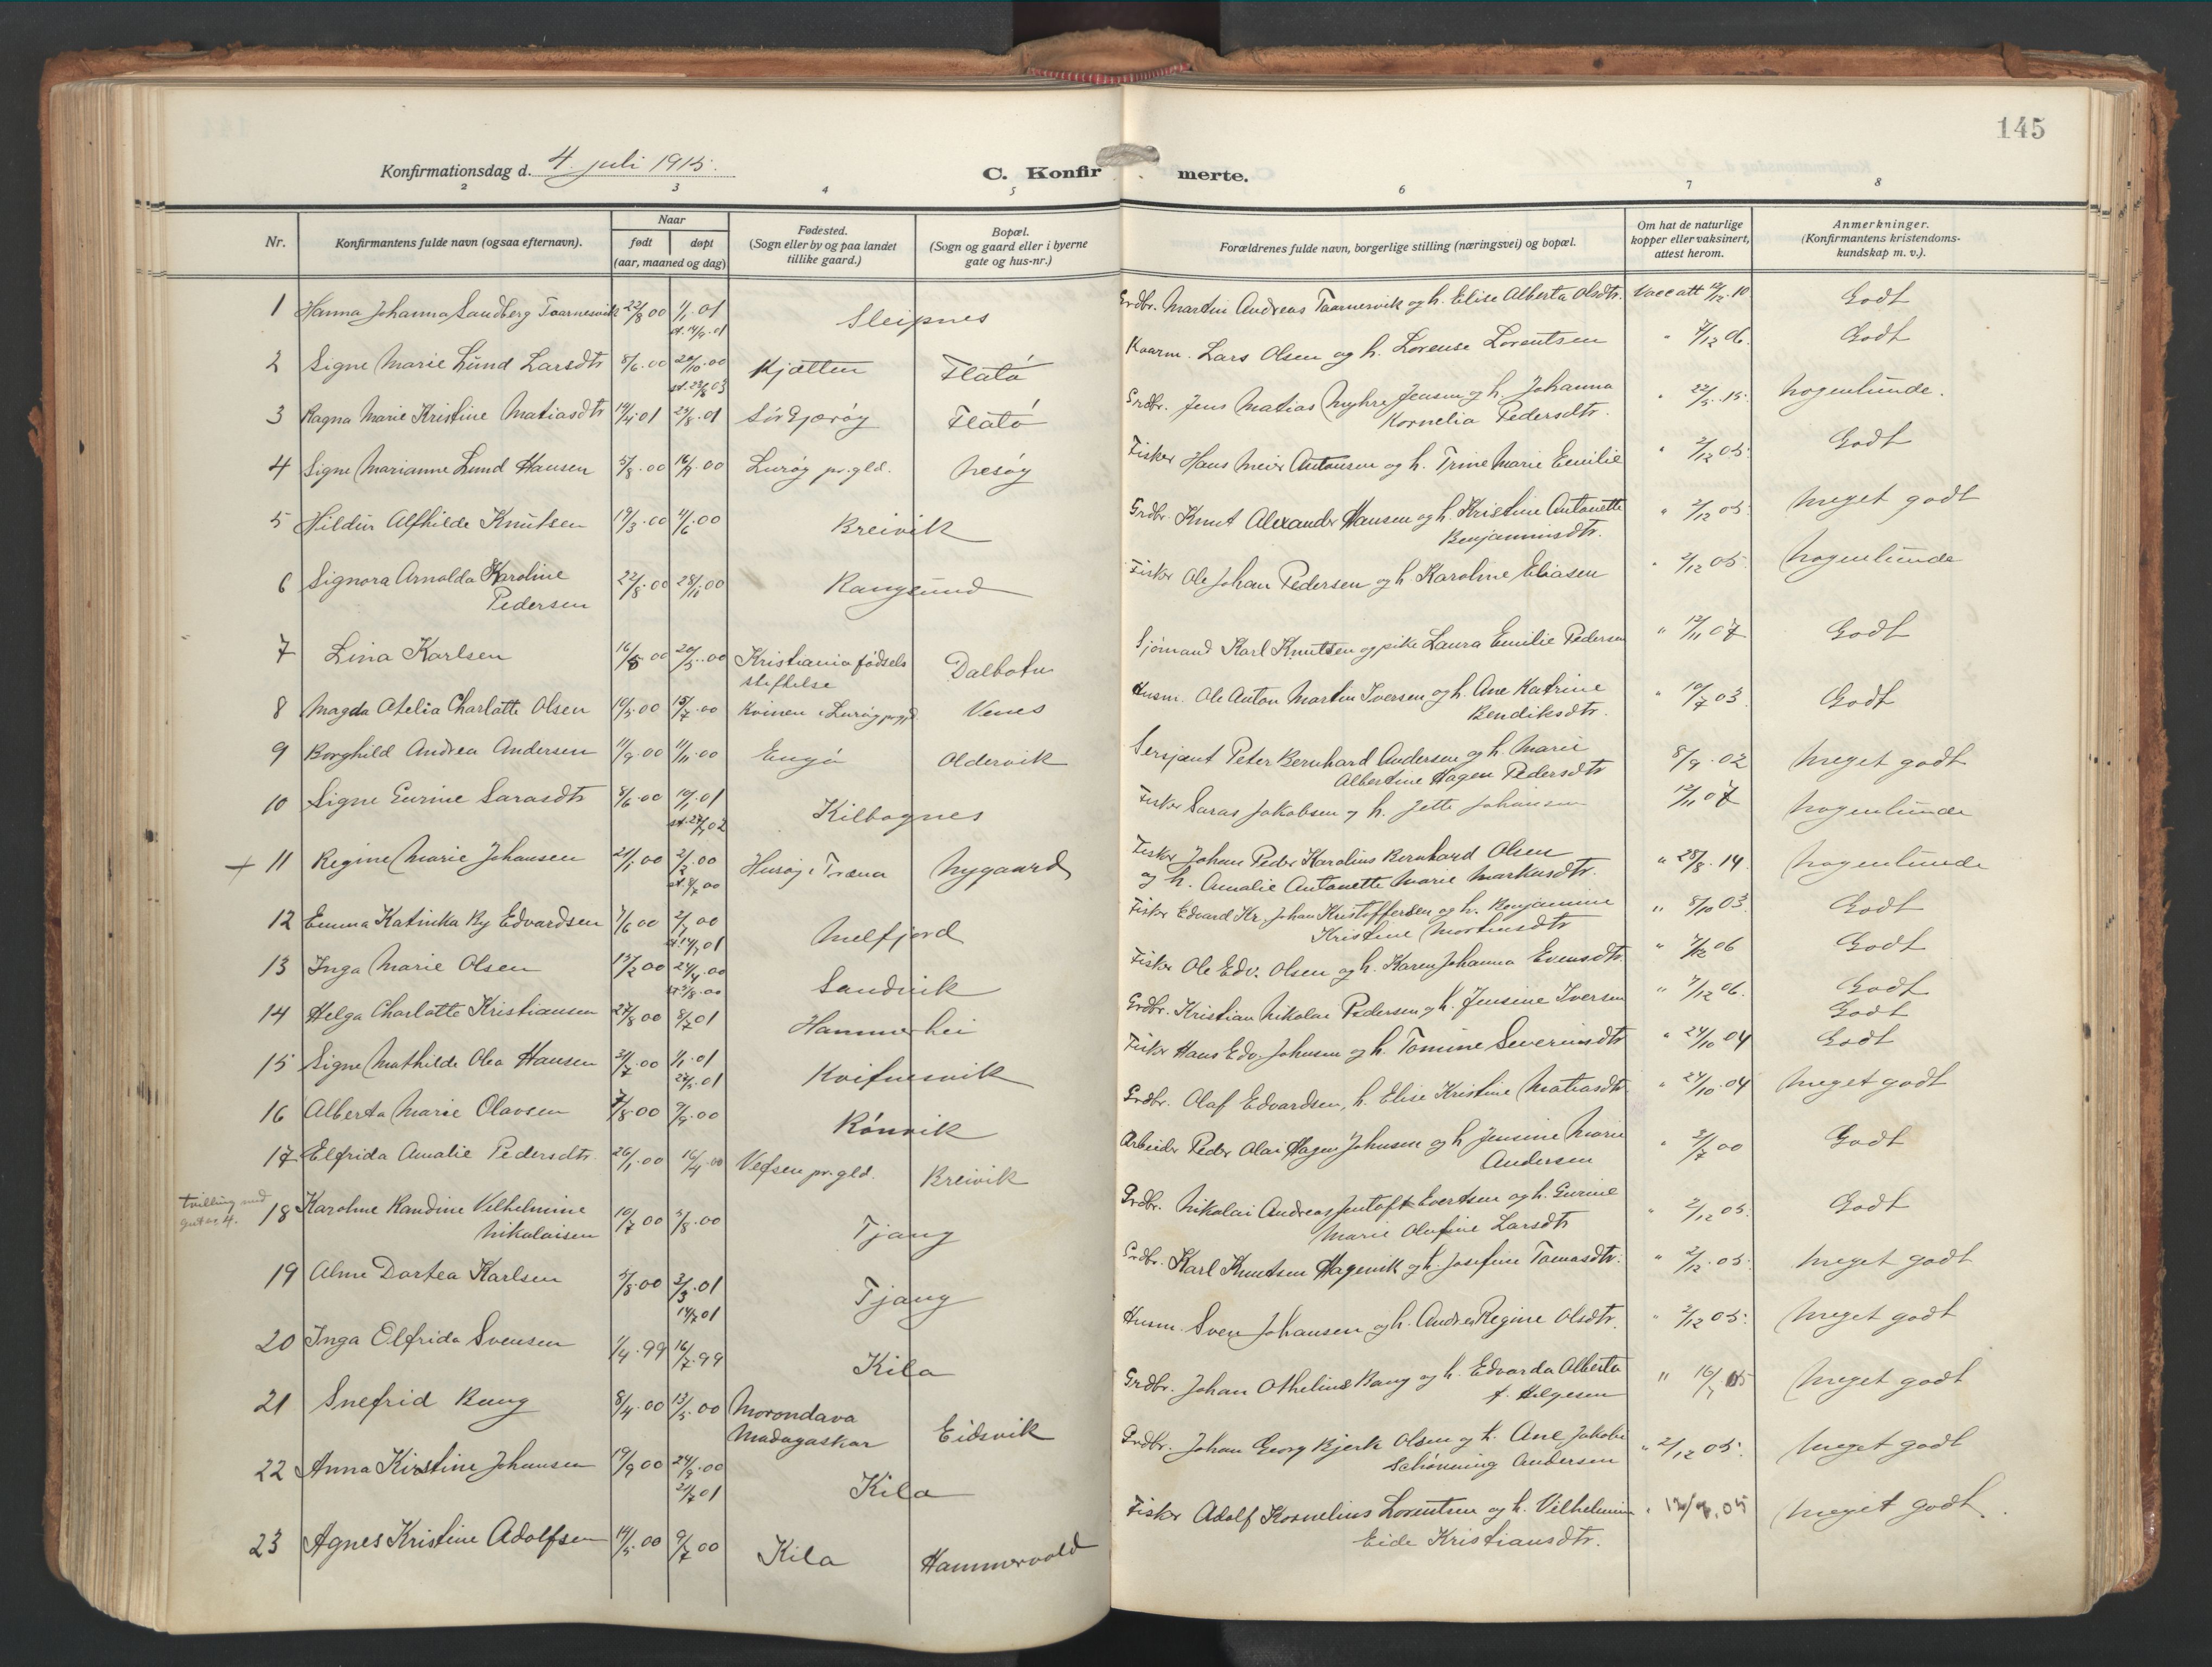 145
Konfirmationsdag d. 4. juli 1915.
C. Konfirmerte.
2 3 4 5 6 7 8
Nr.
Konfirmantens fulde navn (ogsaa efternavn).
Naar
født døpt
(aar, maaned og dag)
Fødested.
(Sogn eller by og paa landet
tillike gaard.)
Bopæl.
(Sogn og gaard eller i byerne
gate og hus-nr.)
Forældrenes fulde navn, borgerlige stilling (næringsvei) og bopæl.
Om hat de naturlige
kopper eller vaksinert,
attest herom.
Anmerkninger.
(Konfirmantens kristendoms-
kundskap m. v.).
1 Hanna Johanna Sandberg Taarnesvik 22/8 00 1/1.01 Sleipnes Grdbr. Martin Andreas Taarnesvik og h. Elise Alberta Olsdtr. Vacc att 12/12.10 Godt
2 Signe Marie Lund Larsdtr 8/6.00 20/10.00 Kjætten Flatö Lars Olsen og h. Lorense Lorentsen " 7/12 06. Godt
st. 23/8 03
3 Ragna Marie Kristine Matiasdtr 14/4 01 25/8.01 Sör Gjæröy Flatö Grdbr. Jens Matias Myhre Jensen og h. Johanna " 22/5.15. Nogenlunde.
Kornelia Pedersdtr.
4 Signe Marianne Lund Hansen 5/8.00 16/9.00 Luröy pr.gld. Nesöy Fisker Hans Meier Antonsen og h. Trine Marie Emilie " 2/12 05. Godt
5 Hildur Alfhilde Knutsen 19/3.00 4/6.00 Breivik Grdbr. Knut Alexander Hansen og h. Kristine Antonette " 2/12 05. Meget godt
Benjaminsdtr.
6 Signora Arnolda Karoline 22/8.00 28/10.00 Rangsund Fisker Ole Johan Pedersen og h. Karoline Eliasen " 2/12 05. Nogenlunde
Pedersen
7 Lina Karlsen 16/5 00 20/5.00 Kristiania födsels Dalbotn Sjömand Karl Knutsen og pike Laura Emilie Pedersen " 12/11 07 Godt
stiftelse
8 Magda Atelia Charlotte Olsen 10/5.00 15/7.00 Kvinen i Luröy prgjd. Venes Husm. Ole Anton Martin Iversen og h. Ane Katrine " 10/7 03. Godt
Bendiksdtr.
9 Borghild Andrea Andersen 11/9.00 11/11.00 Engö Oldervik Sersjant Peter Bernhard Andersen og h. Marie 8/9.02 Meget godt
Albertine Hagen Pedersdtr
10 Signe Eurine Sarasdtr 8/6.00 10/1.01 Kilbognes Fisker Saras Jakobsen og h. Jette Johansen 12/11 07 Nogenlunde
+ 11 Regine Marie Johansen 21/1.00 2/2.00 Husöy i Træna Nygaard Fisker Johan Peder Karolius Bernhard Olsen " 28/8.14 Nogenlunde
st. 8/7 00 og h. Amalie Antonette Marie Markusdtr.
12 Emma Katinka Ry Edvardsen 7/6 00 2/7 00 Melfjord Fisker Edvard Kr. Johan Kristoffersen og h. Benjamine " 8/10 03. Godt
Kristine Mortensdtr
13 Inga Marie Olsen 15/2 00 24/4.00 Sandvik Fisker Ole Edv. Olsen og h. Karen Johanna Evensdtr. " 7/12 06 Godt
14 Helga Charlotte Kristiansen 27/8 00 8/7 01 Hammerhei Grdbr. Kristian Nikolai Pedersen og h. Jensine Iversen " 7/12 06. Godt
Godt
15 Signe Mathilde Olea Hansen 31/7.00 1/1.01 Kvitnesvik Fisker Hans Edv. Johnsen og h. Tomine Severinsdtr " 24/10 04 Godt
16 Alberta Marie Olavsen 7/8.00 9/9.00 Rönvik Grdbr. Olaf Edvardsen, h. Elise Kristine Matiasdtr " 24/10.04 Meget godt
17 Elfrida Amalie Pedersdtr. 26/1.00 16/4.00 Vefsen pr.gld. Breivik Arbeider Peder Olai Hagen Johnsen og h. Jensine Marie " 2/7 00 Godt
Andersen
tvilling med
gut no 4.
18 Karoline Randine Vilhelmine 10/7 00 5/8.00 Tjang Grdbr. Nikolai Andreas Jentoft Evertsen og h. Gurine " 2/12 05. Godt
Nikolaisen Marie Olufine Larsdtr
19 Alma Dortea Karlsen 5/8.00 3/3.01 Tjang Grdbr. Karl Knutsen Hagevik og h. Josefine Tomasdtr. " 2/12.05. Meget godt
14/7 01
20 Inga Elfrida Svensen 1/4.99 16/7.99 Kila Husm. Sven Johansen og h. Andrea Regine Olsdtr. " 2/12 05. Meget godt
21 Snefrid Bang 8/4.00 13/5.00 Morondava Eidsvik Grdbr. Johan Othelius Bang og h. Edvarda Alberta " 16/7 15 Meget godt
Madagaskar f. Helgesen
22 Anna Kirstine Johansen 19/9 00 24/9.00 Kila Grdbr. Johan Georg Bjerk Olsen og h. Ane Jakobe " 2/12 05. Meget godt
21/7 01 Schönning Andersen
23 Agnes Kristine Adolfsen 14/5.00 9/7 00 Kila Hammervold Fisker Adolf Kornelius Lorentsen og h. Vilhelmine " Meget godt.
Eide Kristiansdtr.